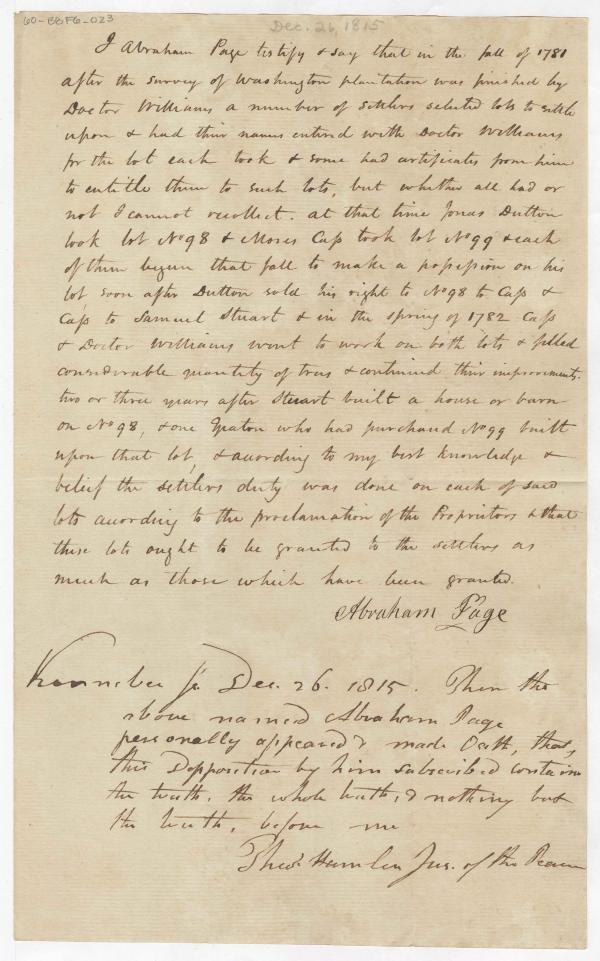 60-B8F6_023
Dec. 26, 1815
I Abraham Page testify & say that in the fall of 1781
after the survey of Washington plantation was finished by
Doctor Williams a number of settlers selected lots to settle
upon & had their names entered with Doctor Williams
for the lot each took & some had certificates from him
to entitle them to such lots, but whether all had or
not I cannot recollect. at that time Jonas Dutton
took lot No 98 & Moses Cass took lot No 99 & each
of them begun that fall to make a possession on his
lot, soon after Dutton sold his right to No 98 to Cass &
Cass to Samuel Stuart & in the spring of 1782 Cass
& Doctor Williams went to work on both lots & felled
considerable quantity of trees & continued their improvements.
two or three years after Steuart built a house or barn
on No 98, & one Yeaton who had purchased No 99 built
upon that lot, & according to my best knowledge &
belief the settlers duty was done on each of said
lots according to the proclamation of the Proprietors & that
these lots ought to be granted to the settlers as
much as those which have been granted.
Abraham Page
Kennebec Dec. 26. 1815. Then the
above named Abraham Page
personally appeared & made Oath, that,
this Depposition by him subscribed contains
the truth, the whole truth, & nothing but
the truth, before me
Theo. Hamlen Jus. of the Peace